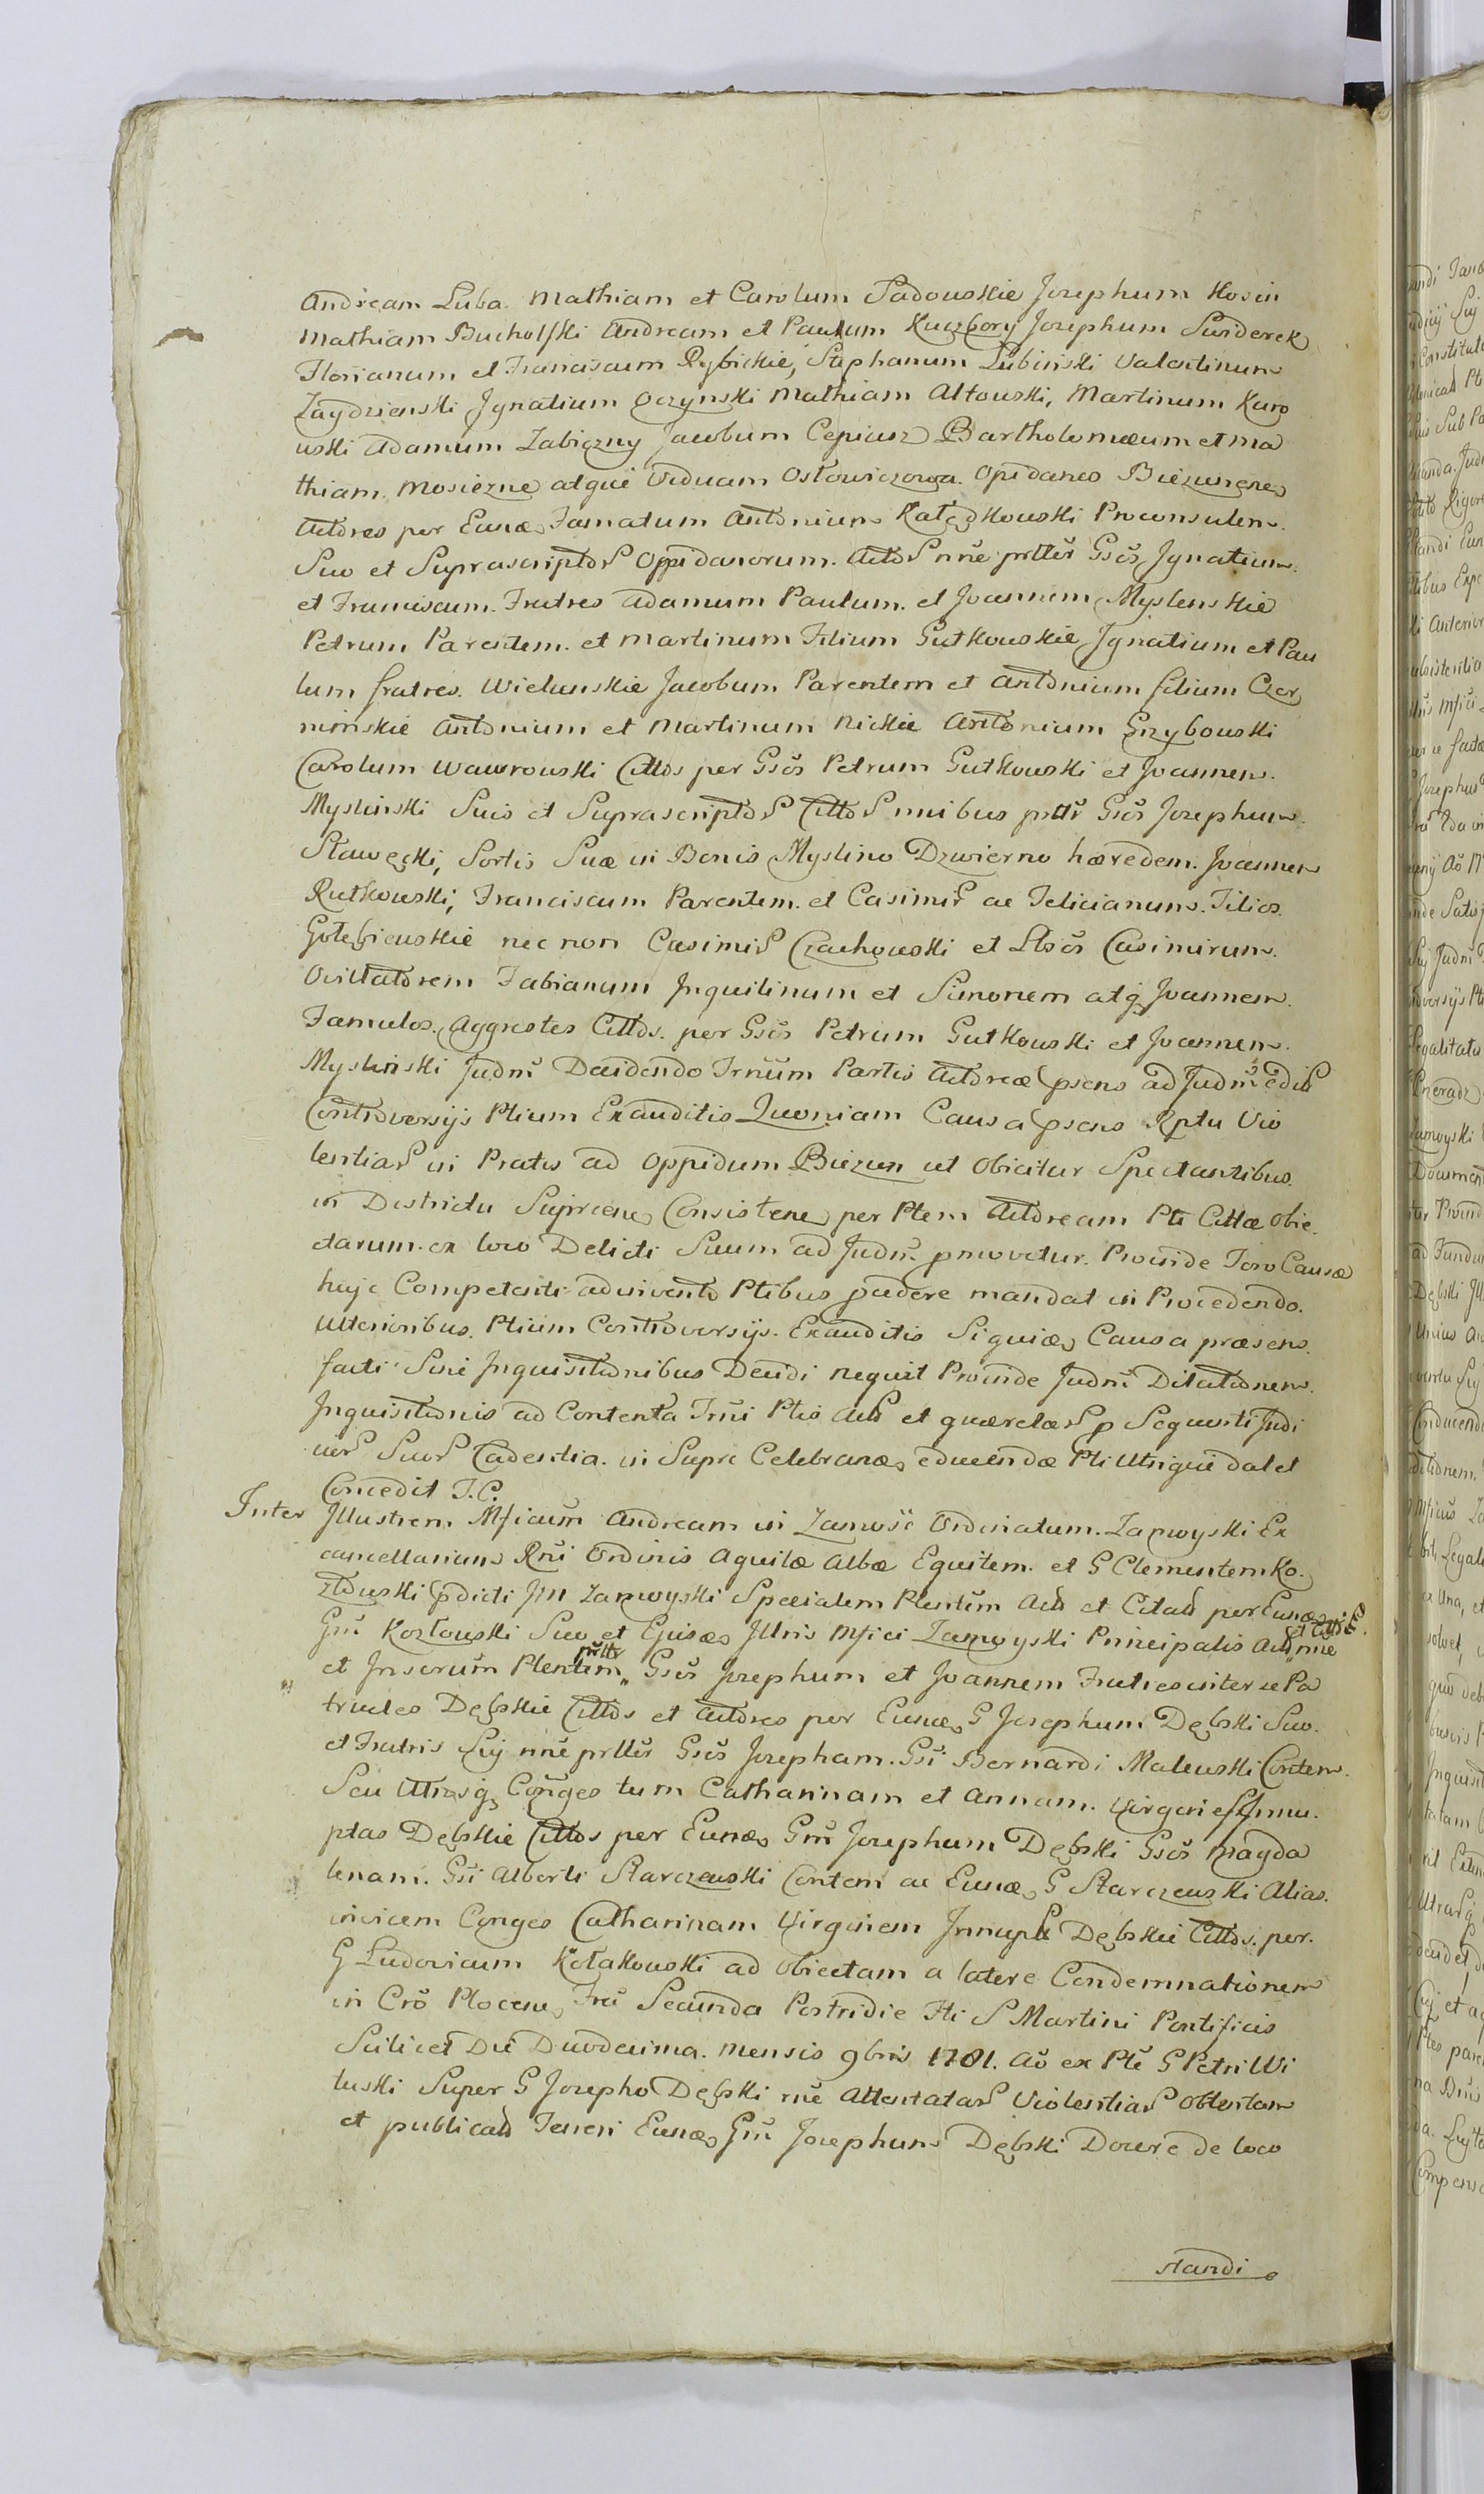 Andream Luba Mathiam et Carolum Sadowskie Josephum Kosin
Mathiam Bucholski Andream et Paulum Kuczbory Josephum Swiderek
Florianum et Franciscum Rybickie, Stephanum Lubinski Valentinum
Zaydzienski Jgnatium Oczynski Mathiam Altowski, Martinum Kuro
wski Adamum Zabiczny Jacobum Cepiusz Bartholomæum et Ma
thiam Mosiezne atque Viduam Ostowiczowa Opidanes Biezunenes
Actores per Eunæ Famatum Antonium Kałędkowski Proconsulem
Suo et Suprascriptor Oppidanorum Actor nne prtter Gsos Jgnatium
et Franciscum Fratres Adamum Paulum et Joannem Myslenskie
Petrum Parentem et Martinum Filium Gutkowskie Jgnatium et Pau
lum fratres Wielunskie Jacobum Parentem et Antonium filium Czer
minskie Antonium et Martinum Nickie Antonium Grzybowski
Carolum Wawrowski Cittos per Gsos Petrum Gutkowski et Joannem
Myslinski Suis et Suprascriptor Cittor nnibus prttr Gsos Josephum
Stawęcki, Sortis Suæ in Bonis Myslino Dzwierno hæredem Joannem
Rutkowski, Franciscum Parentem et Casimir ac Felicianum Filios
Gołębiewskie nec non Casimir Czachowski et Lbsos Casimirum
Ovillatorem Fabianum Jnquilinum et Simonem atq Joannem
Famulos Aggrestes Cittos per Gsos Petrum Gutkowski et Joannem
Myslinski Judm Decidendo Trnum Partis Actoreæ psens ad Judm edit
Controversijs Ptium Exauditis Quoniam Causa psens Rptu Vio
lentiar in Pratis ad Oppidum Biezun ut Obicitur Spectantibus
in Districtu Sieprcen Consisten per Ptem Actoream Pti Cittæ Obie
ctarum ex loco Delicti Suum ad Judm pmovetur Proinde Foro Causæ
hujc Competenti adinvento Ptibus pcedere mandat in Procedendo
Ulterioribus Ptium Controversijs Exauditis Siquid Causa præsens
facti Sine Jnquisitionibus Decidi nequit Proinde Judm Dilationem
Jnquisitionis ad Contenta Trni Ptis Act et quærelar p Sequesti Judi
cier Suor Cadentia in Supre Celebranæ educendæ Pti Utrique dat et
Concedit T.C.
Inter Jllustrem Mficum Andream in Zamość Ordinatum Zamoyski Ex
cancellarium Rni Ordinis Aquilæ Albæ Equitem et G Clementem Ko
złowski pdicti Jllu Zamoyski Specialem Plentem Act et Citat per Eunæ
Gm Kozłowski Suo et Ejusæ Jllris Mfici Zamoyski Principalis Act nne
et Jnserum Plentem prttr Gsos Josephum et Joannem Fratres inter se Pa
trueles Dębskie Cittos et Actores per Eunæ G Josephum Dębski Suo
et Fratris Suj nne prtter Gsos Josepham Gsi Bernardi Malewski Contem
Seu Utrosq Conges tum Catharinam et Annam Virgines Jnnu
ptas Dębskie Cittos per Eunæ Gm Josephum Dębski Gsos Magda
lenam Gsi Alberti Starczewski Contem ac Eunæ G Starczewski Alias
invicem Conges Catharinam Virginem Jnnupt Dębskie Cittos per
G Ludovicum Kołakowski ad Obiectam a latere Condemnationem
in Cro Plocen Fra Secunda Postridie Fti S Martini Pontificis
Scilicet Die Duodecima mensis 9bris 1781 Ao ex Pte G Petri Wi
tuski Super G Josepho Dębski rne Attentatar Violentiar Obtentam
et publicat Teneri Eunæ Gm Josephum Dębski Docere de loco
standi